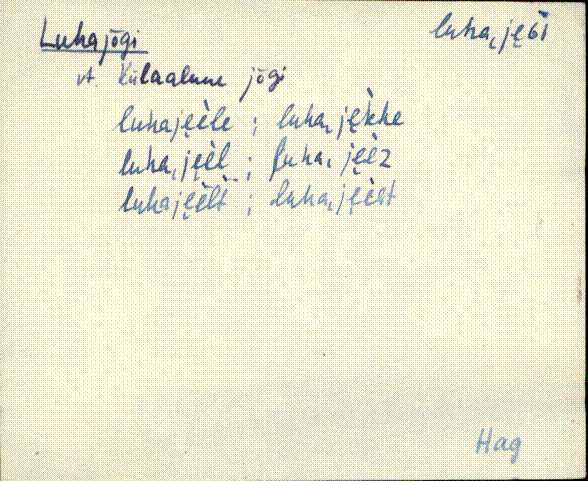 Luhajõgi luhaˌję̀ɢi
vt. Külaalune jõgi
luhaję̀ele ; luhaˌję̀kke
luhaˌję̀el ; luhaˌję̀ez
luhaję̀elt ; luhaˌję̀est
Hag